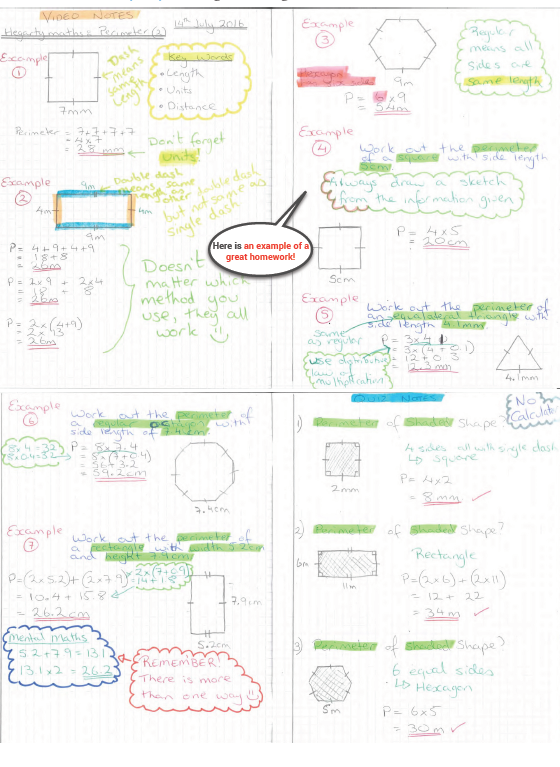 VIDEO NOTES
14th July 2016
Hegartymaths = Perimeter (2)
Example
1
7mm
Dash
means
same
length
Key Words
• Length
• Units
• Distance
Perimeter = 7+7+7+7
= 4×7
= 28 mm
Don't forget
units!
Example
2
9m
4m
4m
9m
Double dash
means same
double dash
but not same as
single dash
P = 4+9+4+9
= 18+8
= 26m
P = 2×9 + 2×4
= 18 + 8
= 26m
P = 2×(4+9)
= 2×13
= 26m
Doesn't
matter which
method you
use, they all
work
Here is an example of a
great homework!
Example
3
Hexagon
9m
P = 6×9
= 54m
Regular
means all
sides are
same length
Example
4
Work out the perimeter
of a square with side length
5cm
Always draw a sketch
from the information given
5cm
P = 4×5
= 20cm
Example
5
Work out the perimeter of
an equalateral triangle with
side length 4.1mm.
same
as regular
P = 3×4.1
= 3×(4+0.1)
= 12+0.3
use distributive
law of
multiplication
4.1mm
Example
6
Work out the perimeter of
a regular octagon with
side length of 7.4cm
8×7=56
8×0.4=3.2
P = 8×7.4
= 8×(7+0.4)
= 56+3.2
= 59.2cm
7.4cm
Example
7
Work out the perimeter of
a rectangle with width 5.2cm
and height 7.9cm
P=(2×5.2)+(2×7.9)
2×(7+0.9)
=14+1.8
= 10.4 + 15.8
= 26.2cm
7.9cm
5.2cm
Mental Maths
5.2+7.9=13.1
13.1×2 = 26.2
REMEMBER!
There is more
than one way
QUIZ NOTES
NO
Calculator
1) Perimeter of shaded shape?
4 sides all with single dash
↳ square
2mm
P = 4×2
= 8mm ✓
2) Perimeter of shaded shape?
Rectangle
6m
11m
P=(2×6)+(2×11)
= 12 + 22
= 34m ✓
3) Perimeter of shaded shape?
6 equal sides
↳ Hexagon
5m
P = 6×5
= 30m ✓